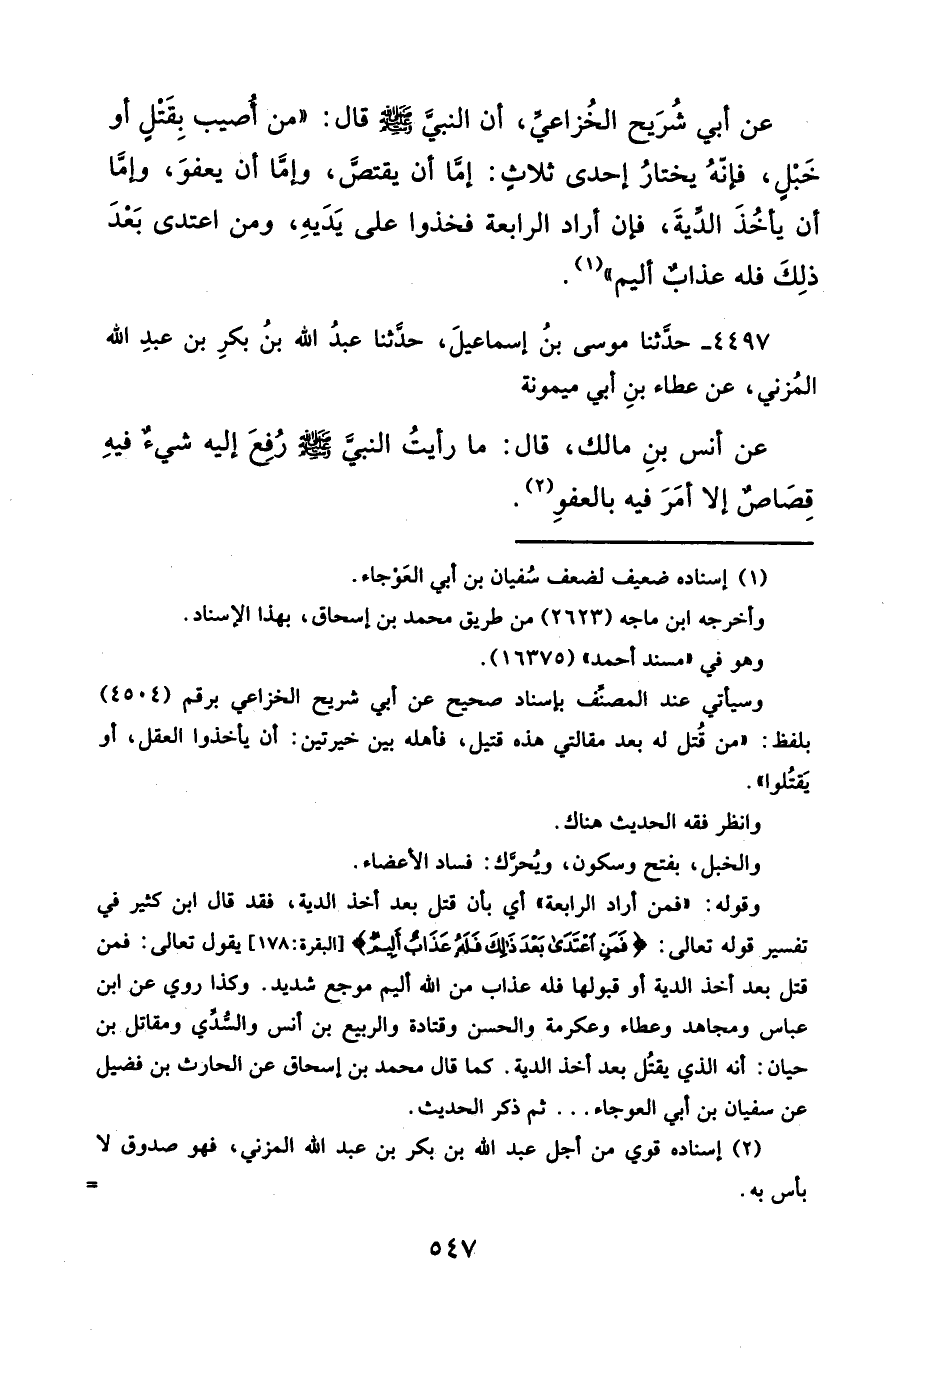 عن أبي شُرَيح الخُزاعيِّ، أن النبيَّ ﷺ قال: «من أُصيب بِقَتْلٍ أو
خَبْلٍ، فإنّهُ يختارُ إحدى ثلاثٍ: إمَّا أن يقتصَّ، وإمَّا أن يعفوَ، وإمَّا
أن يأخُذَ الدِّيةَ، فإن أراد الرابعة فخذوا على يَدَيهِ، ومن اعتدى بَعْدَ
ذلِكَ فله عذابٌ أليم»(١).
٤٤٩٧ـ حدَّثنا موسى بنُ إسماعيلَ، حدَّثنا عبدُ الله بنُ بكرِ بن عبدِ الله
المُزني، عن عطاء بنِ أبي ميمونة
عن أنس بنِ مالك، قال: ما رأيتُ النبيَّ ﷺ رُفِعَ إليه شيءٌ فيهِ
قِصَاصٌ إلا أمَرَ فيه بالعفوِ(٢).
(١) إسناده ضعيف لضعف سُفيان بن أبي العَوْجاء.
وأخرجه ابن ماجه (٢٦٢٣) من طريق محمد بن إسحاق، بهذا الإسناد.
وهو في «مسند أحمد» (١٦٣٧٥).
وسيأتي عند المصنَّف بإسناد صحيح عن أبي شريح الخزاعي برقم (٤٥٠٤)
بلفظ: «من قُتل له بعد مقالتي هذه قتيل، فأهله بين خيرتين: أن يأخذوا العقل، أو
يَقتُلوا».
وانظر فقه الحديث هناك.
والخبل، بفتح وسكون، ويُحرَّك: فساد الأعضاء.
وقوله: «فمن أراد الرابعة» أي بأن قتل بعد أخذ الدية، فقد قال ابن كثير في
تفسير قوله تعالى: ﴿فَمَنِ اعْتَدَىٰ بَعْدَ ذَٰلِكَ فَلَهُ عَذَابٌ أَلِيمٌ﴾ [البقرة:١٧٨] يقول تعالى: فمن
قتل بعد أخذ الدية أو قبولها فله عذاب من الله أليم موجع شديد. وكذا روي عن ابن
عباس ومجاهد وعطاء وعكرمة والحسن وقتادة والربيع بن أنس والسُّدِّي ومقاتل بن
حيان: أنه الذي يقتُل بعد أخذ الدية. كما قال محمد بن إسحاق عن الحارث بن فضيل
عن سفيان بن أبي العوجاء... ثم ذكر الحديث.
(٢) إسناده قوي من أجل عبد الله بن بكر بن عبد الله المزني، فهو صدوق لا
بأس به. =
٥٤٧